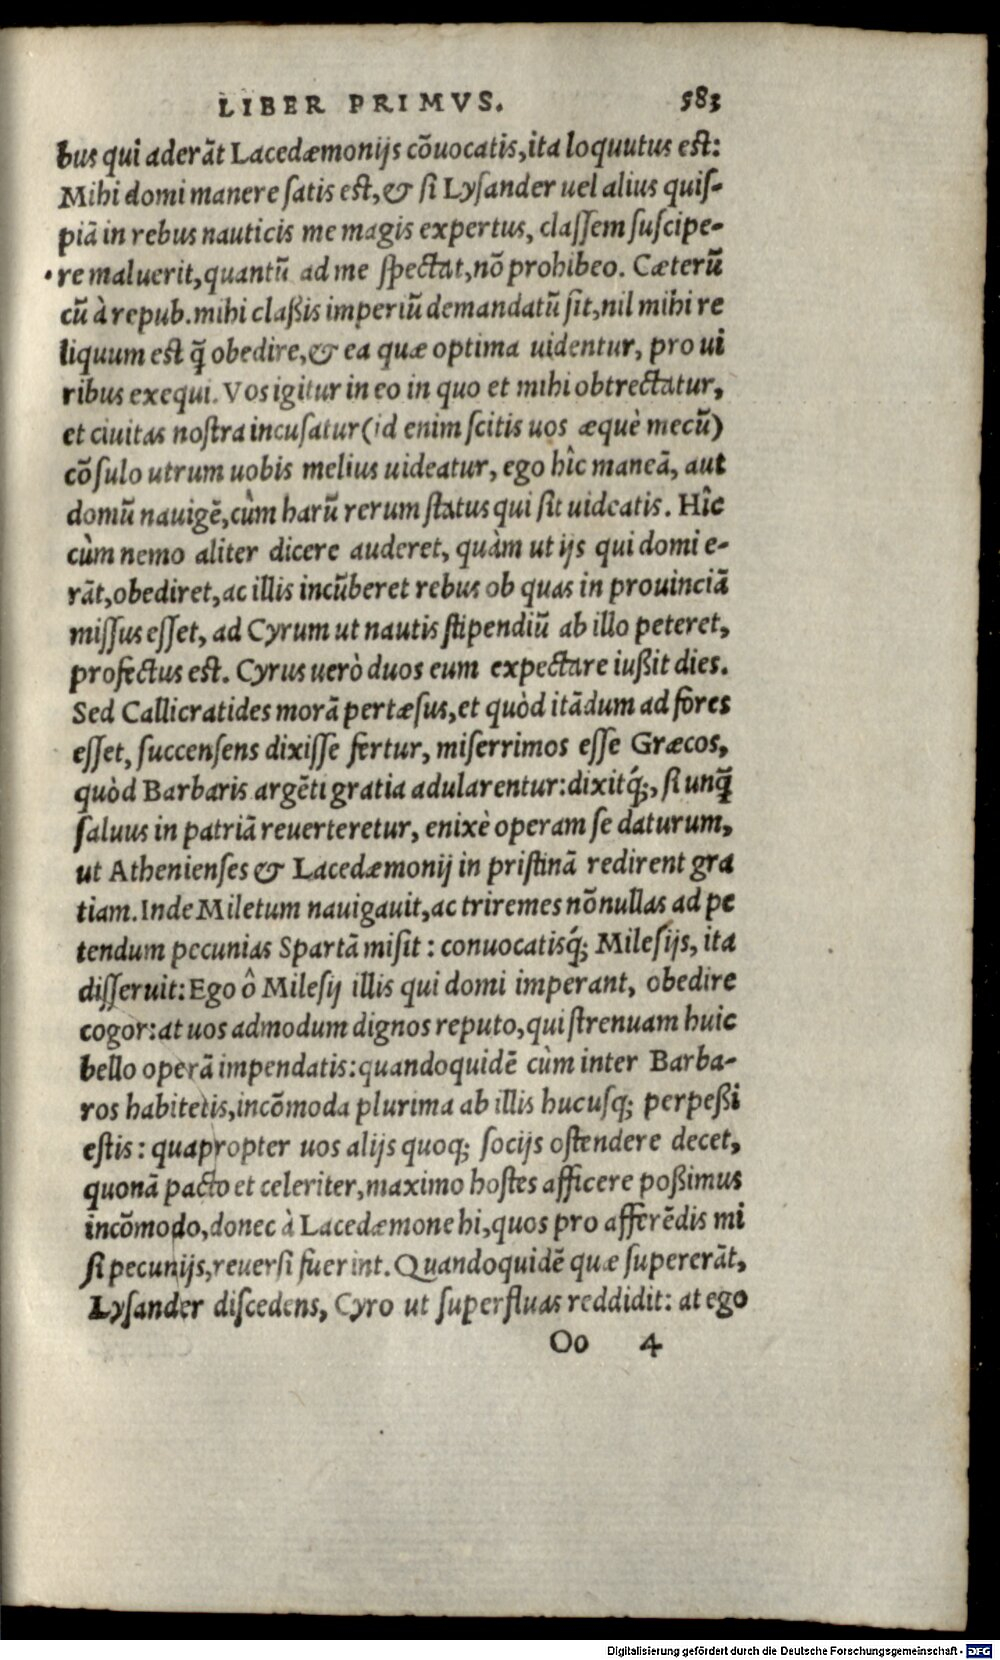 LIBER PRIMVS. 583
bus qui aderāt Lacedæmonijs cōuocatis, ita loquutus est:
Mihi domi manere satis est, & si Lysander uel alius quis-
piā in rebus nauticis me magis expertus, classem suscipe-
re maluerit, quantū ad me spectat, nō prohibeo. Cæterū
cū à repub. mihi claßis imperiū demandatū sit, nil mihi re
liquum est q̄ obedire, & ea quæ optima uidentur, pro ui
ribus exequi. Vos igitur in eo in quo et mihi obtrectatur,
et ciuitas nostra incusatur (id enim scitis uos æquè mecū)
cōsulo utrum uobis melius uideatur, ego hîc maneā, aut
domū nauigē, cùm harū rerum status qui sit uideatis. Hîc
cùm nemo aliter dicere auderet, quàm ut ijs qui domi e-
rāt, obediret, ac illis incūberet rebus ob quas in prouinciā
missus esset, ad Cyrum ut nautis stipendiū ab illo peteret,
profectus est. Cyrus uerò duos eum expectare iußit dies.
Sed Callicratides morā pertæsus, et quòd itādum ad fores
esset, succensens dixisse fertur, miserrimos esse Græcos,
quòd Barbaris argēti gratia adularentur: dixitq́;, si unq̄
saluus in patriā reuerteretur, enixè operam se daturum,
ut Athenienses & Lacedæmonij in pristinā redirent gra
tiam. Inde Miletum nauigauit, ac triremes nōnullas ad pe
tendum pecunias Spartā misit: conuocatisq́; Milesijs, ita
disseruit: Ego ô Milesij illis qui domi imperant, obedire
cogor: at uos admodum dignos reputo, qui strenuam huic
bello operā impendatis: quandoquidē cùm inter Barba-
ros habitetis, incōmoda plurima ab illis hucusq; perpeßi
estis: quapropter uos alijs quoq; socijs ostendere decet,
quonā pacto et celeriter, maximo hostes afficere poßimus
incōmodo, donec à Lacedæmone hi, quos pro afferēdis mi
si pecunijs, reuersi fuerint. Quandoquidē quæ supererāt,
Lysander discedens, Cyro ut superfluas reddidit: at ego
Oo 4
Digitalisierung gefördert durch die Deutsche Forschungsgemeinschaft - DFG